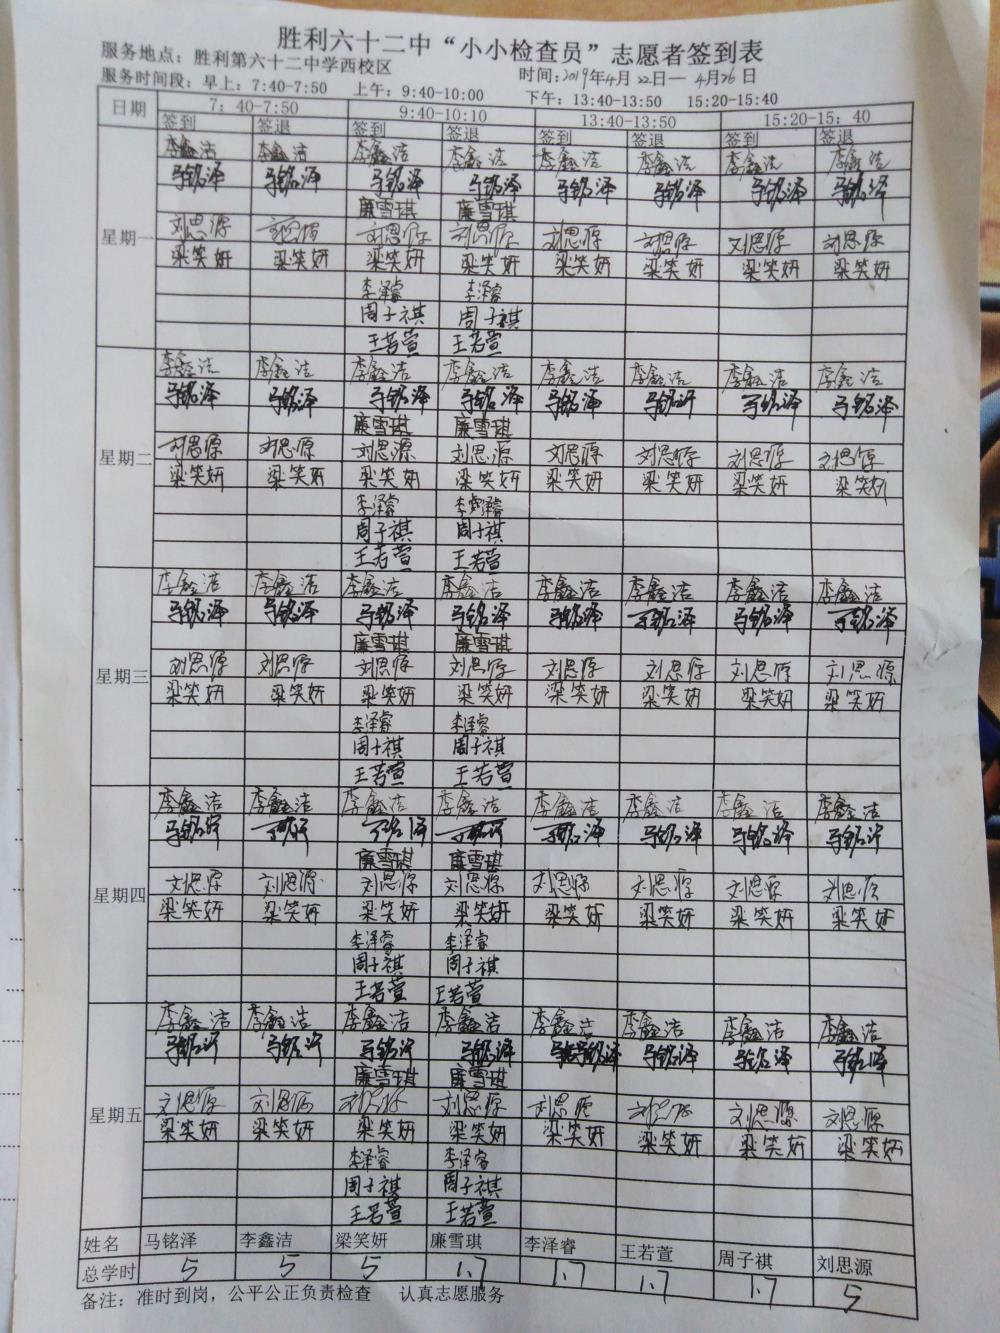 胜利六十二中“小小检查员”志愿者签到表
服务地点：胜利第六十二中学西校区 时间：2019年4月22日—4月26日
服务时间段：早上：7:40-7:50 上午：9:40-10:00 下午：13:40-13:50 15:20-15:40
日期 7：40-7:50 9:40-10:10 13:40-13:50 15:20-15：40
签到 签退 签到 签退 签到 签退 签到 签退
李鑫洁 李鑫洁 李鑫洁 李鑫洁 李鑫洁 李鑫洁 李鑫洁 李鑫洁
马铭泽 马铭泽 马铭泽 马铭泽 马铭泽 马铭泽 马铭泽 马铭泽
廉雪琪 廉雪琪
星期一 刘思源 刘思源 刘思源 刘思源 刘思源 刘思源 刘思源 刘思源
梁笑妍 梁笑妍 梁笑妍 梁笑妍 梁笑妍 梁笑妍 梁笑妍 梁笑妍
李泽睿 李泽睿
周子祺 周子祺
王若萱 王若萱
李鑫洁 李鑫洁 李鑫洁 李鑫洁 李鑫洁 李鑫洁 李鑫洁 李鑫洁
马铭泽 马铭泽 马铭泽 马铭泽 马铭泽 马铭泽 马铭泽 马铭泽
廉雪琪 廉雪琪
星期二 刘思源 刘思源 刘思源 刘思源 刘思源 刘思源 刘思源 刘思源
梁笑妍 梁笑妍 梁笑妍 梁笑妍 梁笑妍 梁笑妍 梁笑妍 梁笑妍
李泽睿 李泽睿
周子祺 周子祺
王若萱 王若萱
李鑫洁 李鑫洁 李鑫洁 李鑫洁 李鑫洁 李鑫洁 李鑫洁 李鑫洁
马铭泽 马铭泽 马铭泽 马铭泽 马铭泽 马铭泽 马铭泽 马铭泽
廉雪琪 廉雪琪
星期三 刘思源 刘思源 刘思源 刘思源 刘思源 刘思源 刘思源 刘思源
梁笑妍 梁笑妍 梁笑妍 梁笑妍 梁笑妍 梁笑妍 梁笑妍 梁笑妍
李泽睿 李泽睿
周子祺 周子祺
王若萱 王若萱
李鑫洁 李鑫洁 李鑫洁 李鑫洁 李鑫洁 李鑫洁 李鑫洁 李鑫洁
马铭泽 马铭泽 马铭泽 马铭泽 马铭泽 马铭泽 马铭泽 马铭泽
廉雪琪 廉雪琪
星期四 刘思源 刘思源 刘思源 刘思源 刘思源 刘思源 刘思源 刘思源
梁笑妍 梁笑妍 梁笑妍 梁笑妍 梁笑妍 梁笑妍 梁笑妍 梁笑妍
李泽睿 李泽睿
周子祺 周子祺
王若萱 王若萱
李鑫洁 李鑫洁 李鑫洁 李鑫洁 李鑫洁 李鑫洁 李鑫洁 李鑫洁
马铭泽 马铭泽 马铭泽 马铭泽 马铭泽 马铭泽 马铭泽
廉雪琪 廉雪琪
星期五 刘思源 刘思源 刘思源 刘思源 刘思源 刘思源 刘思源 刘思源
梁笑妍 梁笑妍 梁笑妍 梁笑妍 梁笑妍 梁笑妍 梁笑妍 梁笑妍
李泽睿 李泽睿
周子祺 周子祺
王若萱 王若萱
姓名 马铭泽 李鑫洁 梁笑妍 廉雪琪 李泽睿 王若萱 周子祺 刘思源
总学时 5 5 5 1.7 1.7 1.7 1.7 5
备注：准时到岗，公平公正负责检查 认真志愿服务